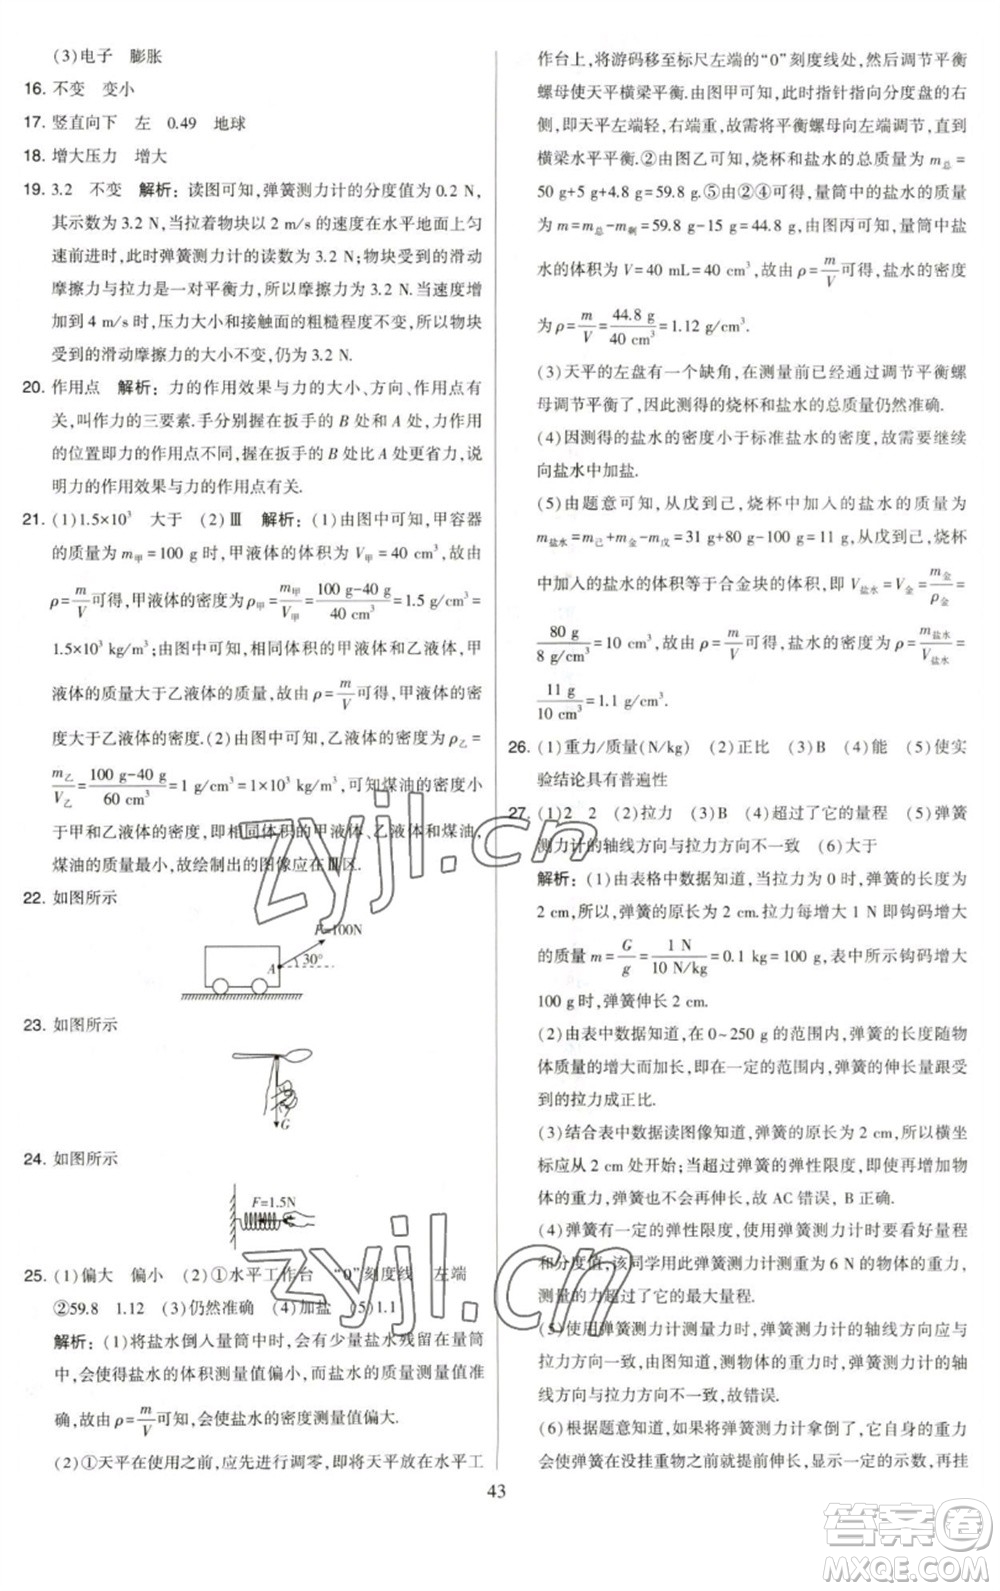 (3)电子　膨胀
16. 不变　变小
17. 竖直向下　左　0.49　地球
18. 增大压力　增大
19. 3.2　不变　解析：读图可知,弹簧测力计的分度值为0.2 N,
其示数为3.2 N,当拉着物块以2 m/s的速度在水平地面上匀
速前进时,此时弹簧测力计的读数为3.2 N;物块受到的滑动
摩擦力与拉力是一对平衡力,所以摩擦力为3.2 N.当速度增
加到4 m/s时,压力大小和接触面的粗糙程度不变,所以物块
受到的滑动摩擦力的大小不变,仍为3.2 N.
20. 作用点　解析：力的作用效果与力的大小、方向、作用点有
关,叫作力的三要素.手分别握在扳手的B处和A处,力作用
的位置即力的作用点不同,握在扳手的B处比A处更省力,说
明力的作用效果与力的作用点有关.
21. (1)1.5×10³　大于　(2)Ⅲ　解析：(1)由图中可知,甲容器
的质量为m甲=100 g时,甲液体的体积为V甲=40 cm³,故由
ρ=m/V可得,甲液体的密度为ρ甲=m甲/V甲=(100 g-40 g)/(40 cm³)=1.5 g/cm³=
1.5×10³ kg/m³;由图中可知,相同体积的甲液体和乙液体,甲
液体的质量大于乙液体的质量,故由ρ=m/V可得,甲液体的密
度大于乙液体的密度.(2)由图中可知,乙液体的密度为ρ乙=
m乙/V乙=(100 g-40 g)/(60 cm³)=1 g/cm³=1×10³ kg/m³,可知煤油的密度小
于甲和乙液体的密度,即相同体积的甲液体、乙液体和煤油,
煤油的质量最小,故绘制出的图像应在Ⅲ区.
22. 如图所示
F=100N
A
30°
23. 如图所示
G
24. 如图所示
F=1.5N
25. (1)偏大　偏小　(2)①水平工作台　“0”刻度线　左端
②59.8　1.12　(3)仍然准确　(4)加盐　(5)1.1
解析：(1)将盐水倒入量筒中时,会有少量盐水残留在量筒
中,使得盐水的体积测量值偏小,而盐水的质量测量值准
确,故由ρ=m/V可知,会使盐水的密度测量值偏大.
(2)①天平在使用之前,应先进行调零,即将天平放在水平工
作台上,将游码移至标尺左端的“0”刻度线处,然后调节平衡
螺母使天平横梁平衡.由图甲可知,此时指针指向分度盘的右
侧,即天平左端轻,右端重,故需将平衡螺母向左端调节,直到
横梁水平平衡.②由图乙可知,烧杯和盐水的总质量为m总=
50 g+5 g+4.8 g=59.8 g.⑤由②④可得,量筒中的盐水的质量
为m=m总-m剩=59.8 g-15 g=44.8 g,由图丙可知,量筒中盐
水的体积为V=40 mL=40 cm³,故由ρ=m/V可得,盐水的密度
为ρ=m/V=44.8 g/40 cm³=1.12 g/cm³.
(3)天平的左盘有一个缺角,在测量时已经通过调节平衡螺
母调节平衡了,因此测得的烧杯和盐水的总质量仍然准确.
(4)因测得的盐水的密度小于标准盐水的密度,故需要继续
向盐水中加盐.
(5)由题意可知,从戊到己,烧杯中加入的盐水的质量为
m盐水=m己+m金-m戊=31 g+80 g-100 g=11 g,从戊到己,烧杯
中加入的盐水的体积等于合金块的体积,即V盐水=V金=m金/ρ金=
80 g/(8 g/cm³)=10 cm³,故由ρ=m/V可得,盐水的密度为ρ=m盐水/V盐水=
11 g/10 cm³=1.1 g/cm³.
26. (1)重力/质量(N/kg)　(2)正比　(3)B　(4)能　(5)使实
验结论具有普遍性
27. (1)2　2　(2)拉力　(3)B　(4)超过了它的量程　(5)弹簧
测力计的轴线方向与拉力方向不一致　(6)大于
解析：(1)由表格中数据知道,当拉力为0时,弹簧的长度为
2 cm,所以,弹簧的原长为2 cm.拉力每增大1 N即钩码增大
的质量m=G/g=1 N/(10 N/kg)=0.1 kg=100 g,表中所示钩码增大
100 g时,弹簧伸长2 cm.
(2)由表中数据知道,在0~250 g的范围内,弹簧的长度随物
体质量的增大而加长,即在一定的范围内,弹簧的伸长量跟受
到的拉力成正比.
(3)结合表中数据读图像知道,弹簧的原长为2 cm,所以横坐
标应从2 cm处开始;当超过弹簧的弹性限度,此时再增加物
体的重力,弹簧将不再伸长,故AC错误,B正确.
(4)弹簧有一定的弹性限度,使用弹簧测力计时要看好量程
和分度值,该同学使用弹簧测力计测重为6 N的物体的重力,
测量的力超过了它的量程.
(5)使用弹簧测力计测量力时,弹簧测力计的轴线方向应与
拉力方向一致,由图知道,测物体的重力时,弹簧测力计的轴
线方向与拉力方向不一致,故错误.
(6)根据题意知道,如果将弹簧测力计拿倒了,它自身的重力
会使弹簧在没挂重物之前就提前伸长,显示一定的示数,再挂
43
zyjl.cn
zyjl.cn
答案圈
MXQE.COM